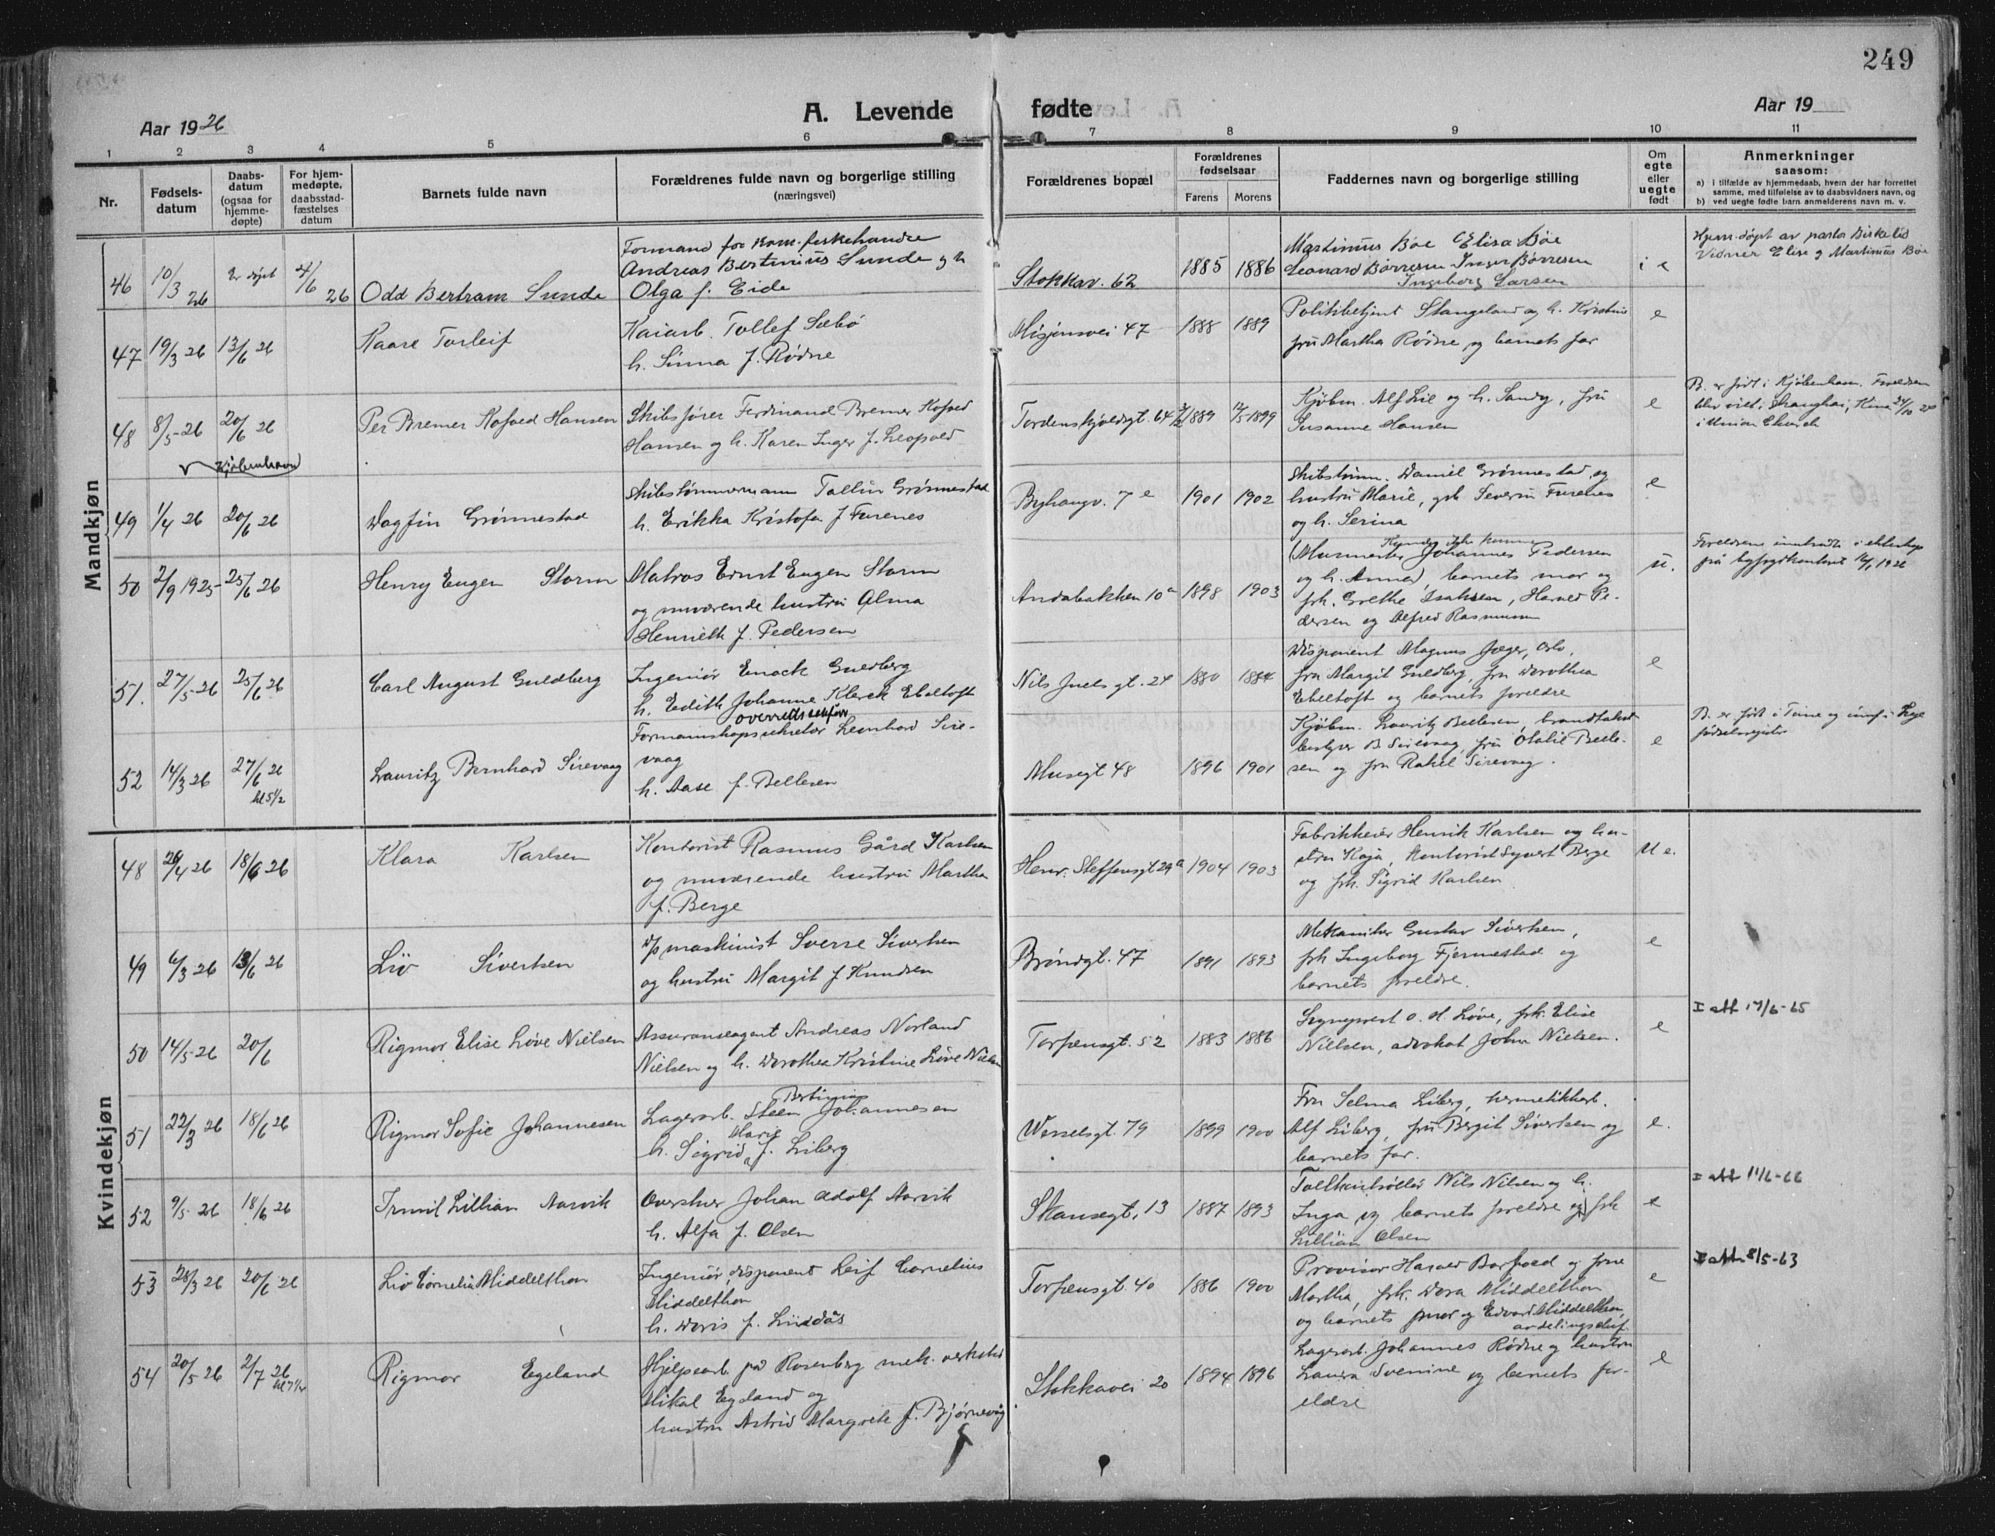 249
A. Levende fødte
Aar 1926
Aar 19
1 2 3 4 5 6 7 8 9 10 11
Nr.
Fødsels-
datum
Daabs-
datum
(ogsaa for
hjemme-
døpte)
For hjem-
medøpte,
daabsstad-
fæstelses
datum
Barnets fulde navn
Forældrenes fulde navn og borgerlige stilling
(næringsvei)
Forældrenes bopæl
Forældrenes
fødselsaar
Farens Morens
Faddernes navn og borgerlige stilling
Om
egte
eller
uegte
født
Anmerkninger
saasom:
a) i tilfælde av hjemmedaab, hvem der har forrettet
samme, med tilføielse av to daabsvidners navn, og
b) ved uegte fødte barn anmelderens navn m. v.
Mandkjøn
46 10/3 26 4/6 26 Odd Bertram Sunde
Formand for kom. fiskehandre
Andreas Bertinius Sunde og h.
Olga f. Eide
Stokkav. 62 1885 1886
Martinius Bøe Elisa Bøe
Leonard Børresen Inger Børresen
Ingeborg Larsen
Hjem. døpt av pastor Birkeli
Vidner Elise og Martinius Bøe
47 19/3 26 13/6 26 Kaare Torleif
Kaiarb. Tollef Sæbø
h. Sinna f. Rødne
Misjonsvei 47 1888 1889
Politibetjent Stangeland og h. Kristine
fru Martha Rødne og barnets far
e
48 8/5-26 20/6 26 Per Bremer Kofoed Hansen
Kjøbenhavn
Skibsfører Ferdinand Bremer Kofoed
Hansen og h. Karen Inger f. Leopold
Tordenskjoldsgt. 64 1889 1899
Kjøbm. Alf Lie og h. Sandy, fru
Susanne Hansen
e
B. er født i Kjøbenhavn. Foreldren
blev viet i Shanghai, Kina 24/10
i Union Church
49 1/4 26 20/6 26 Dagfin Grønnestad
Skibstømmermann Tollin Grønnestad
h. Erikka Kristofa f. Furenes
Byhaugv. 7e 1901 1902
Skibstøm. Daniel Grønnestad og
hustru Marie, Severin Furenes
og h. Serina
e
50 2/9 1925 - 25/6 26 Henry Eugen Storm
Matros Ernst Eugen Storm
og nuværende hustru Alma
Henriette f. Pedersen
Andabakken 10a 1898 1903
(Murmester Johannes Pedersen
og h. Anna), barnets mor og
frk. Grethe Isaksen, Harald Pe-
dersen og Alfred Rasmussen
u.
Foreldrene inntraadte i ekteskap
på byfogdkontoret 1926
51. 27/5-26 25/6 26 Carl August Guldberg
Ingeniør Enock Guldberg
h. Edith Johanne Klerck Ebeltoft
Nils Juels gt. 24 1880 1884
Disponent Magnus Jæger, Oslo,
fru Margit Guldberg, fru Dorothea
Ebeltoft og barnets foreldre
e
52 14/3 26 27/6 26 kl 5 1/2 Lauritz Bernhard Sirevaag
overrettssakfører
Formannskapssekretær Leonhard Sire-
vaag
h. Aase f. Bellesen
Musegt 48 1896 1901
Kjøbm. Lauritz Bellesen, brandtakst
bestyrer B Sirevaag, fru Otalie Belle-
sen og fru Rakel Sirevaag.
e
B. er født i Time og innf. i Lye
fødselsregister
Kvindekjøn
48 26/4 26 18/6 26 Klara Karlsen
Kontorist Rasmus Gård Karlsen
og nuværende hustru Martha
f. Berge
Henr. Steffensgt 29a 1904 1903
Fabrikkeier Henrik Karlsen og hu-
stru Kaja, Kontorist Syvert Berge
og frk. Sigrid Karlsen
u e.
49 6/3 26 13/6 26 Liv Sivertsen
D/p maskinist Sverre Sivertsen
og hustru Margit f Knudsen
Brøndgt. 47 1891 1893
Mekaniker Gustav Sivertsen,
frk Ingeborg Fjermestad og
barnets foreldre.
e
50 14/5-26 20/6 Rigmor Elise Løve Nielsen
Assuranseagent Andreas Norland
Nielsen og h. Dorothea Kristine Løve Nielsen
Torfæusgt. 52 1883 1886
Sogneprest O. H. Løve, frk. Elise
Nielsen, advokat John Nielsen.
e
I att 17/6-65
51 22/3 26 18/6 26 Rigmor Sofie Johannesen
Bertinius
Lagerarb. Steen Johannesen
Marie
h. Sigrid f. Liberg
Wesselsgt. 79 1899 1900
Fru Selma Liberg, hermetikkarb.
Alf Liberg, fru Bergit Sivertsen og
barnets far.
e.
52 9/5-26 18/6 26 Irmil Lillian Aarvik
Overstyr Johan Adolf Aarvik
h. Alfa f. Olsen
Skansegt. 13 1887 1893
Tollkontrollør Nils Nilsen og h.
Inga og barnets foreldre og frk
Lillian Olsen
e
I att 11/6-66
53 28/3 26 20/6 26 Liv Cornelia Middelthon
Ingeniør, disponent Leif Cornelius
Middelthon
h. Doris f. Lindås
Torfæusgt. 40 1886 1900
Provisor Harald Barfoed og frue
Martha, frk. Dora Middelthon
og barnets mor og Edvard Middelthon
avdelingschef.
e
I att 8/5-63
54 20/5 26 2/7 26 kl 7 1/2 Rigmor Egeland
Hjelpearb. på Rosenberg mek. verksted
Mikal Egeland og
hustru Astrid Margrete f. Bjørnevåg
Stokkavei 20 1894 1896
Lagerarb. Johannes Rødne og hustru
Laura Svenine og barnets for-
eldre
e